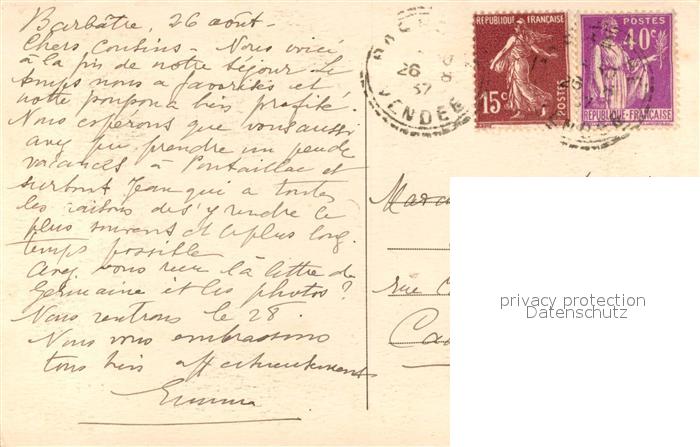 Barbâtre, 26 août -
Chers Cousins - Nous voici
à la fin de notre séjour. Le
temps nous a favorisés et
notre poupon a bien profité.
Nous espérons que vous aussi
avez pu prendre un peu de
vacances à Pontaillac et
surtout Jean qui a toutes
les raisons de s'y rendre le
plus souvent et le plus long-
temps possible
Avez vous reçu la lettre de
Germaine et les photos ?
Nous rentrons le 28.
Nous vous embrassons
tous bien affectueusement
Emma
26
8
37
VENDEE
REPUBLIQUE FRANÇAISE
15c
POSTES
POSTES
40c
REPUBLIQUE-FRANÇAISE
rue
privacy protection
Datenschutz